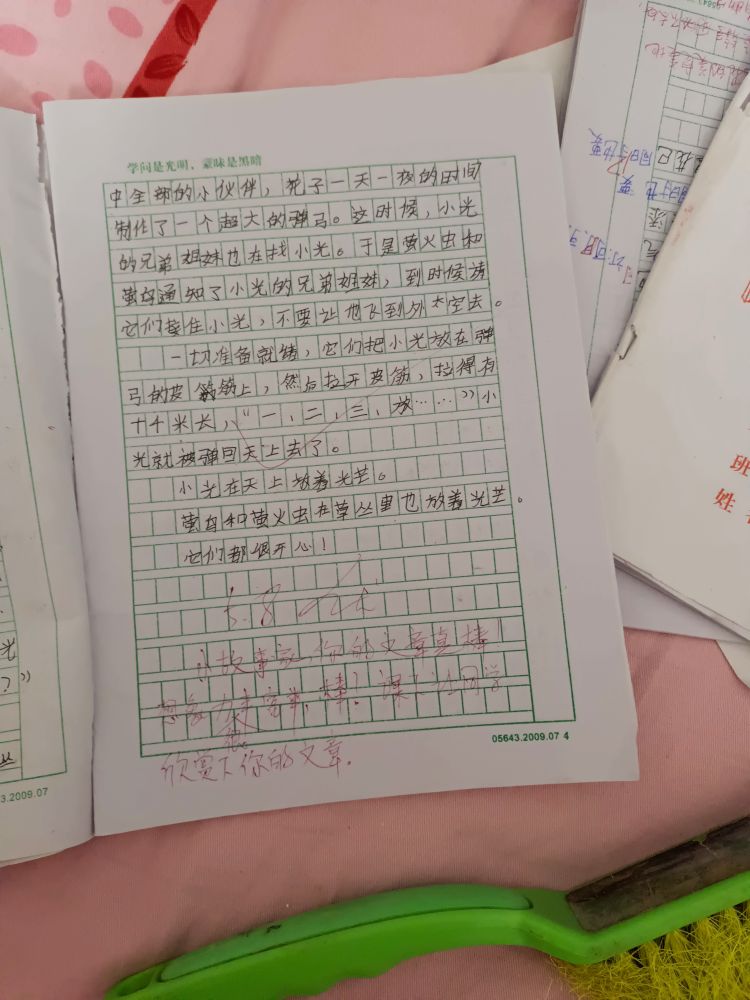 学问是光明、蒙昧是黑暗
中全部的小伙伴，花了一天一夜的时间
制作了一个超大的弹弓。这时候，小光
的兄弟姐妹也在找小光。于是萤火虫和
萤母通知了小光的兄弟姐妹，到时候请
它们接住小光，不要让他飞到外太空去。
一切准备就绪，它们把小光放在弹
弓的皮筋上，然后拉开皮筋，拉得有
十千米长，“一，二，三，放……”小
光就被弹回天上去了。
小光在天上放着光芒。
萤母和萤火虫在草丛里也放着光芒。
它们都很开心！
5.8
小故事家，你的文章真棒！
想象力丰富，很棒！课下让同学
欣赏下你的文章。
05643.2009.07 4
光
？”
丛
3.2009.07
班
姓